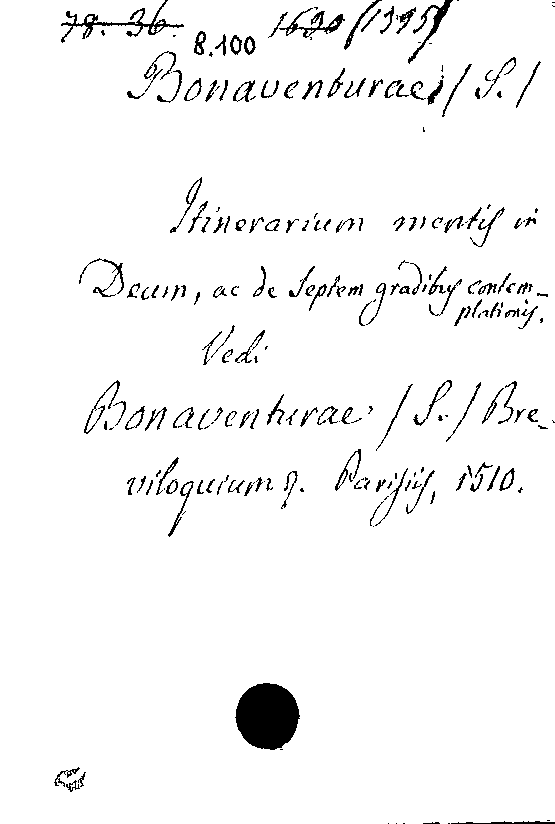 78. 36. 1630 (1395)
8.100
Bonaventurae / S. /
Itinerarium mentis in
Deum, ac de septem gradibus contem-
plationis.
Vedi
Bonaventurae / S. / Bre-
viloquium &. Parisiis, 1510.